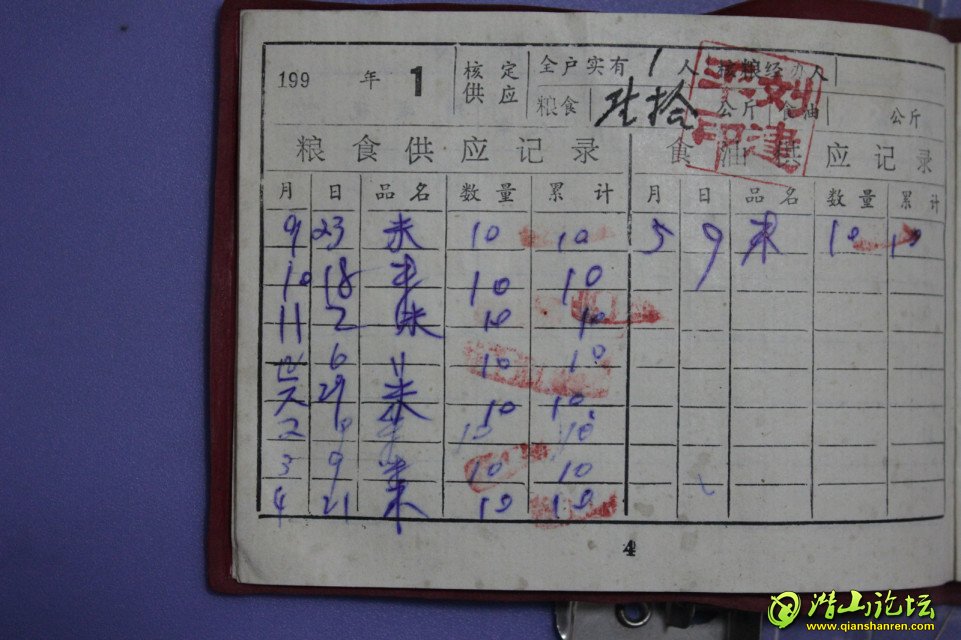 199 年 1 核定供应 全户实有 1 人 核粮经办人
粮食 拾 公斤 食油 公斤
粮食供应记录 食油供应记录
月 日 品名 数量 累计 月 日 品名 数量 累计
9 23 米 10 10 5 9 米 10 10
10 18 米 10 10
11 2 米 10 10
6 10 10
29 米 10 10
2 10 10
3 9 米 10 10
4 21 米 10 10
4
潜山论坛
www.qianshanren.com